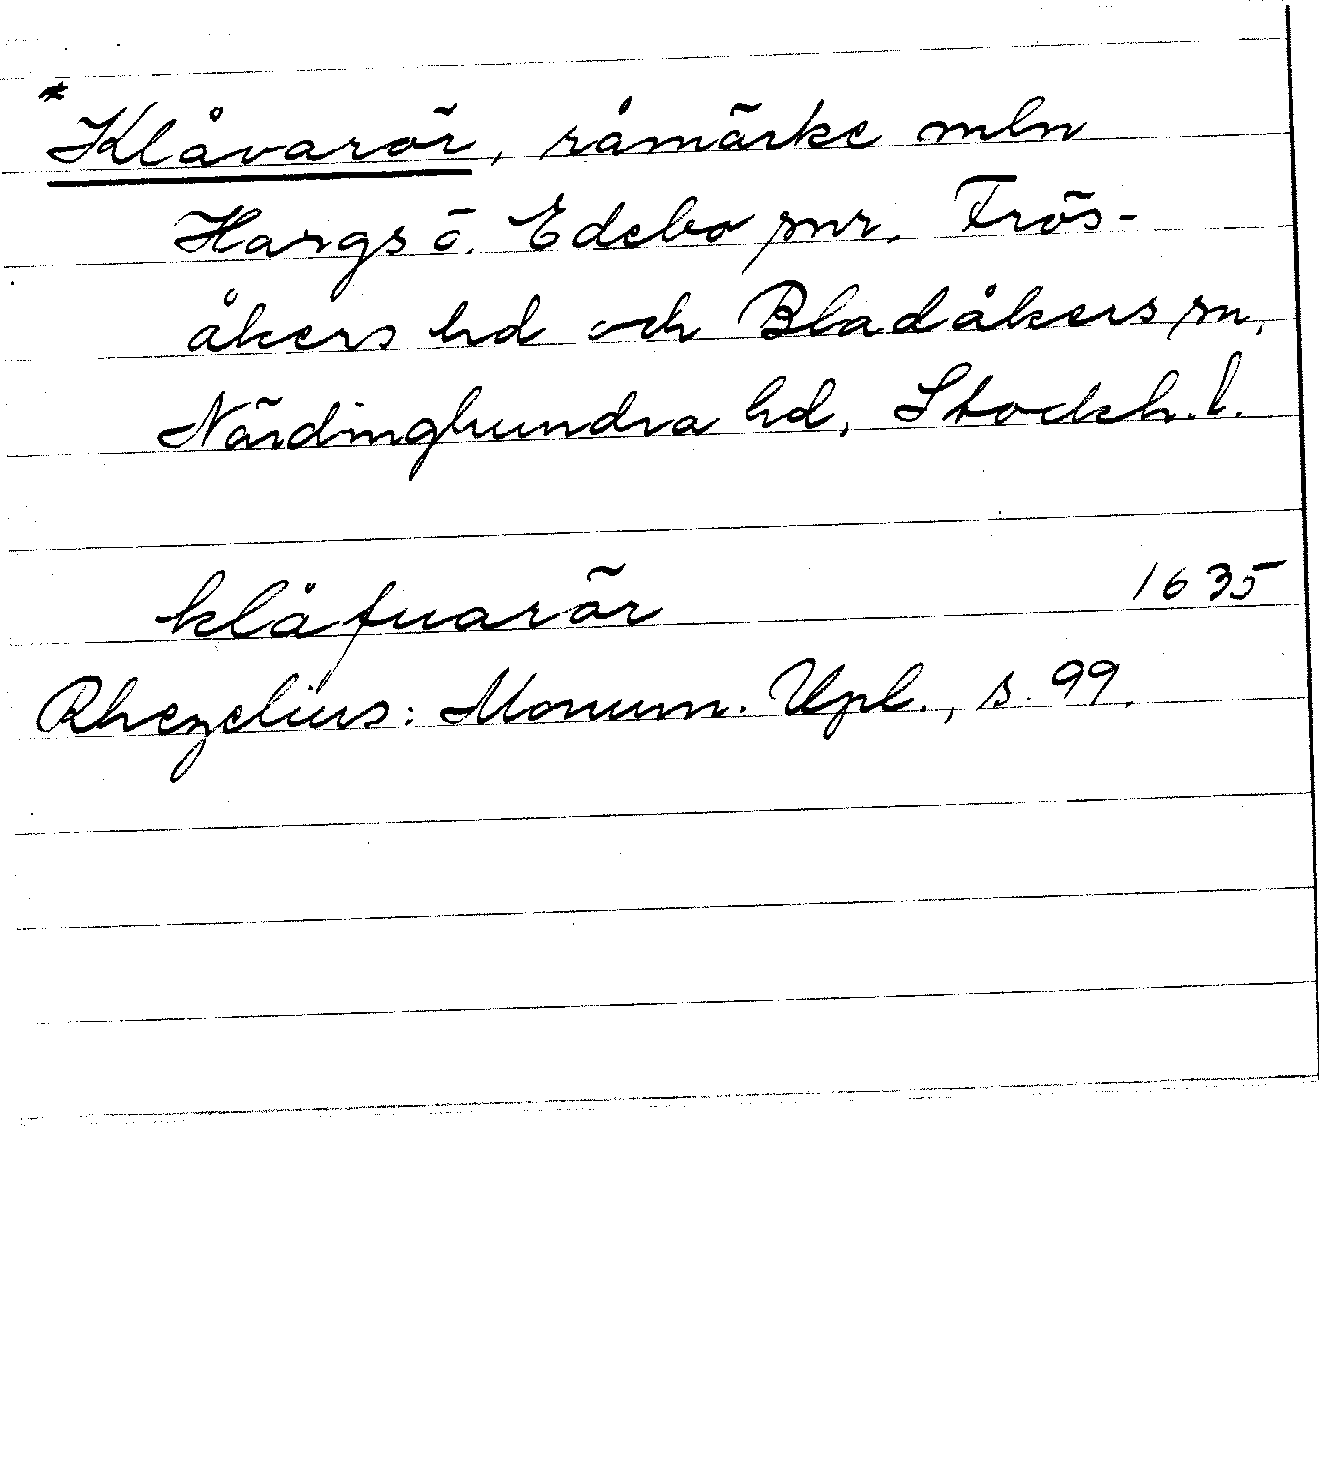 *Klåvarör, råmärke mln
Hargs o. Edebo snr, Frös-
åkers hd och Bladåkers sn,
Närdinghundra hd, Stockh. l.
klåfuarör 1635
Rhezelius: Monum. Upl., s. 99.